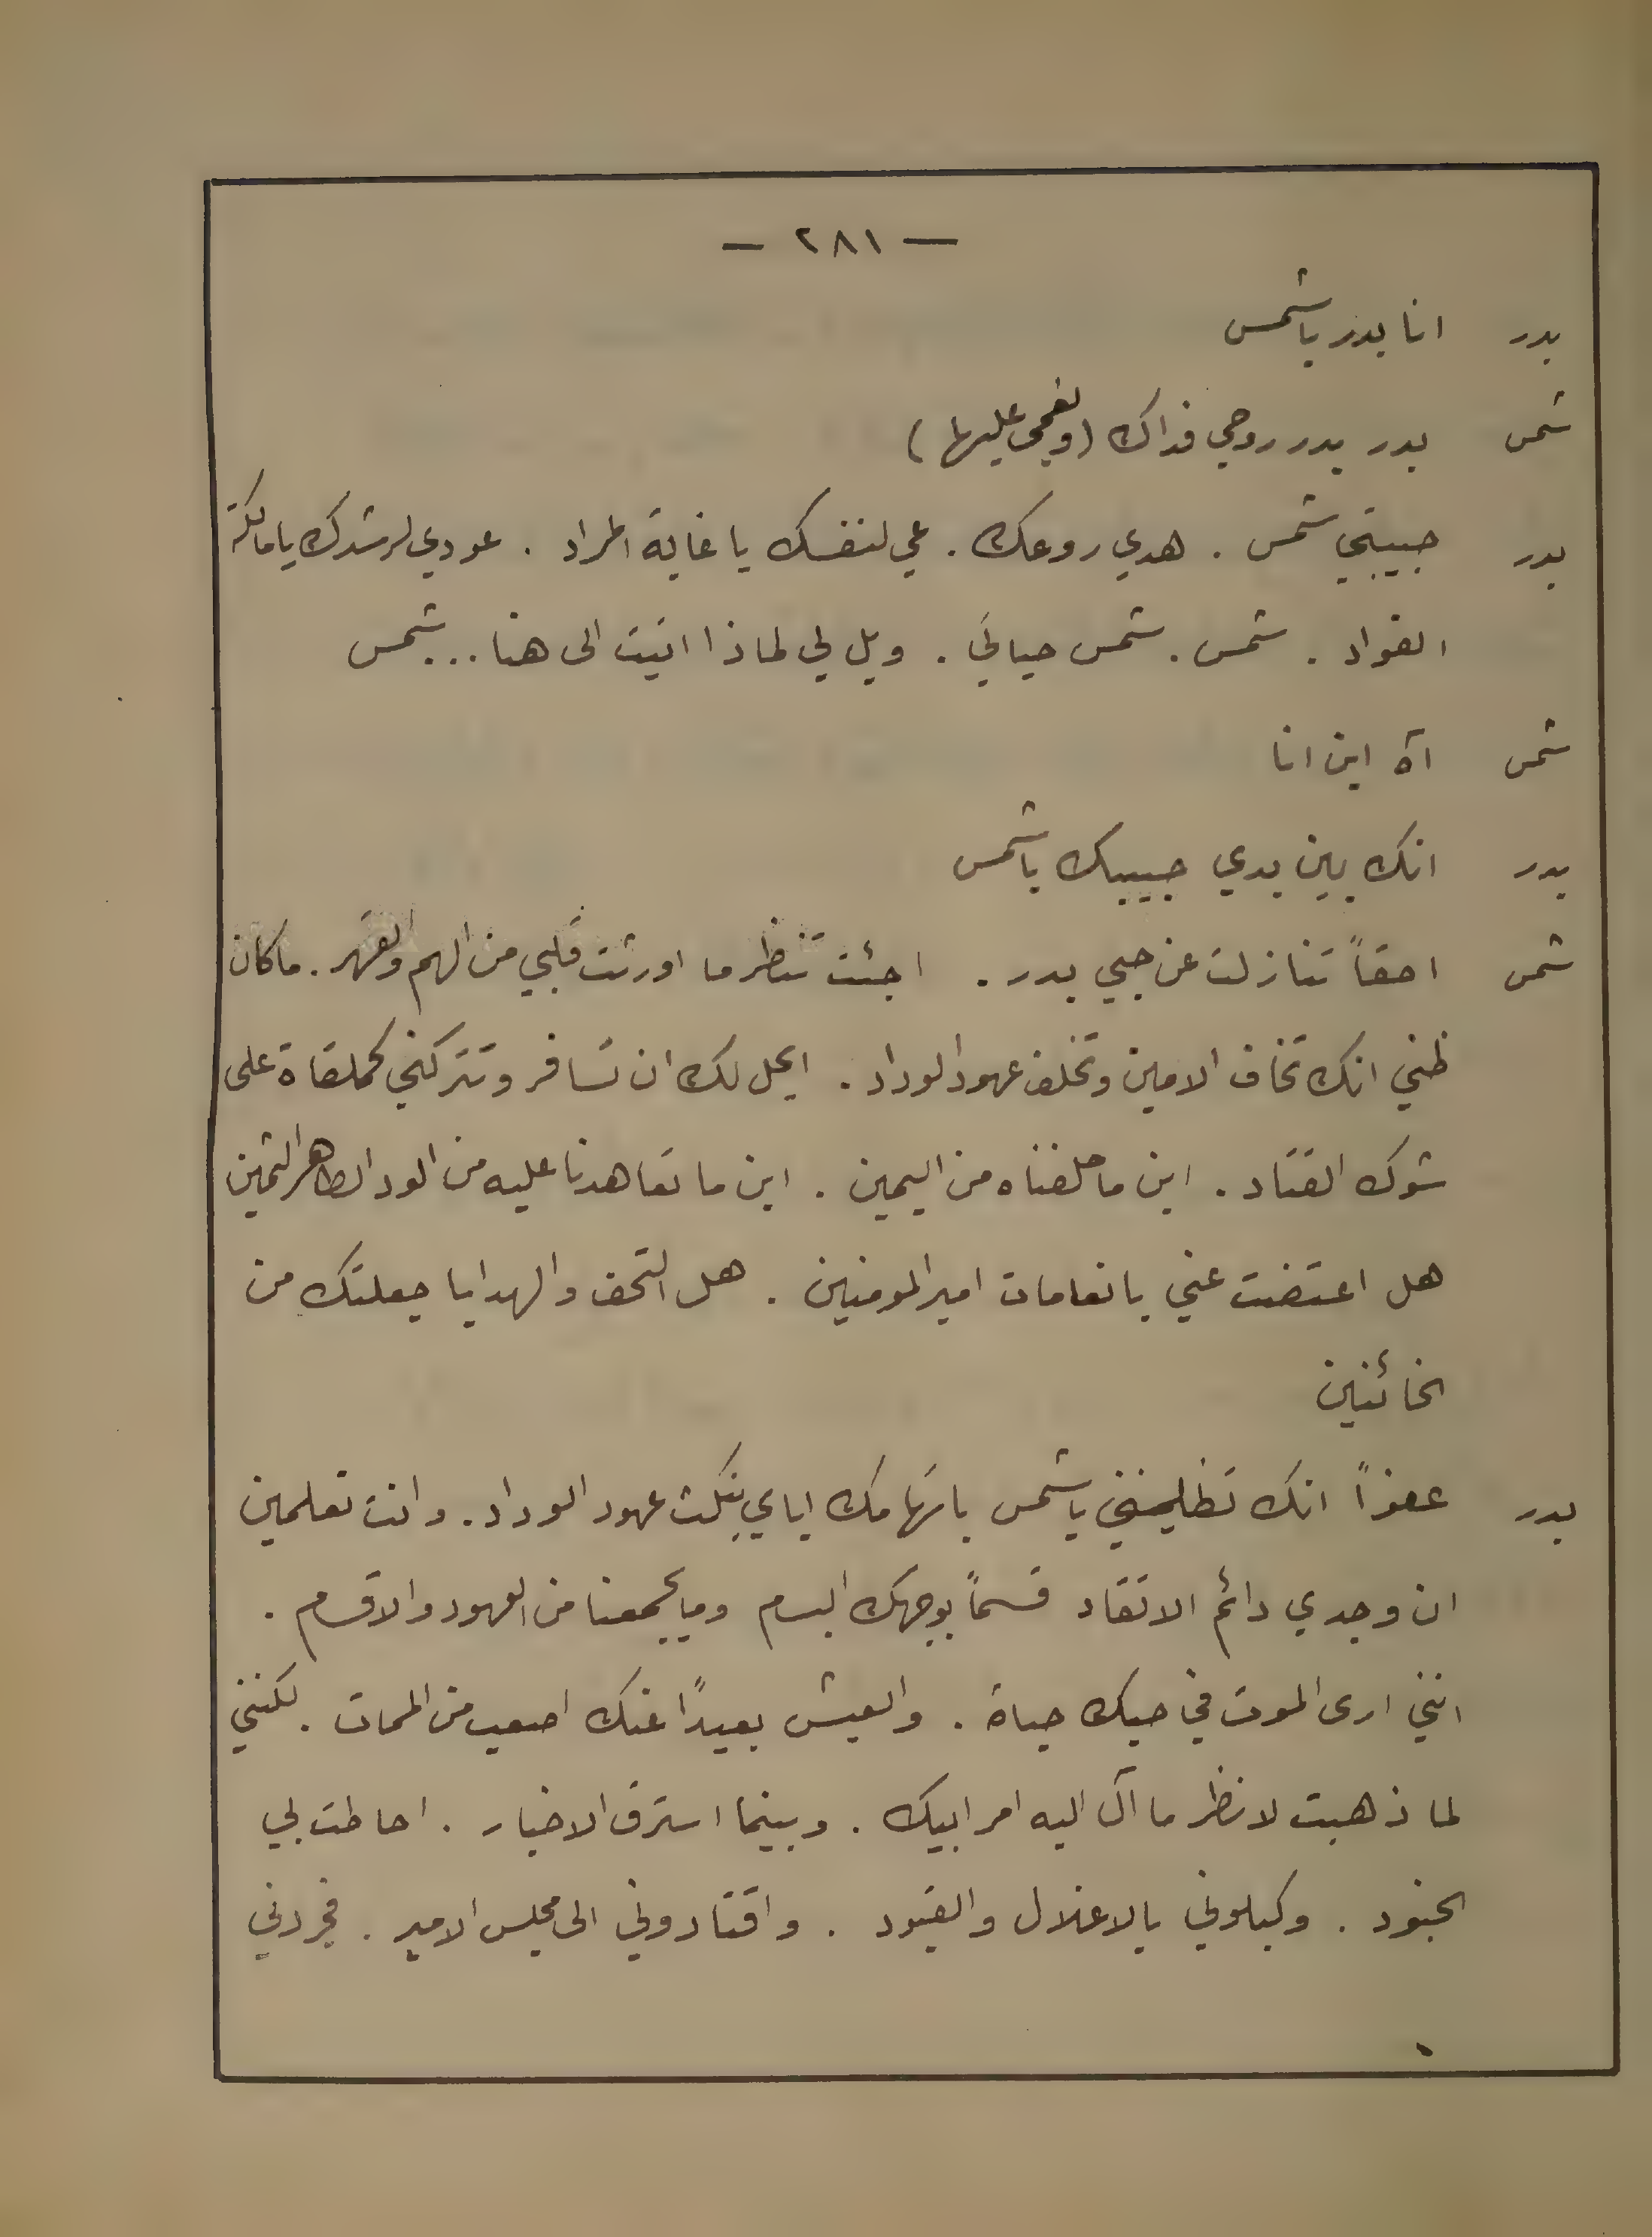 — ٢٨١ —
بدر انا بدر يا شمس
شمس بدر بدر روحي فداك (ويغمى عليها)
بدر حبيبتي شمس . هدي روعك . عي لنفسك يا غاية المراد . عودي لرشدك يا مالكة
الفواد . شمس . شمس حياتي . ويل لي لماذا اتيت الى هنا ... شمس
شمس آه اين انا
بدر انك بين يدي حبيبك يا شمس
شمس احقاً تنازلت عن حبي بدر . اجئت تنظر ما اورثت قلبي من الهم والقهر . ما كان
ظني انك تخاف الامين وتخلف عهود الوداد . ايحل لك ان تسافر وتتركني كملقاة على
شوك القتاد . اين ما حلفناه من اليمين . اين ما تعاهدنا عليه من الود الطاهر الثمين
هل اعتضت عني بانعامات امير المومنين . هل التحف والهدايا جعلتك من
الخائنين
بدر عفواً انك تظلمينني يا شمس باتهامك اياي بنكث عهود الوداد . وانت تعلمين
ان وجدي دائم الاتقاد قسماً بوجهك البسام وما يجمعنا من العهود والاقسام .
انني ارى الموت في حبك حياة . والعيش بعيدًا عنك اصعب من الممات . لكنني
لما ذهبت لانظر ما آل اليه امر ابيك . وبينما استرق الاخبار . احاطت بي
الجنود . وكبلوني بالاغلال والقيود . واقتادوني الى مجلس الامير . فجردني